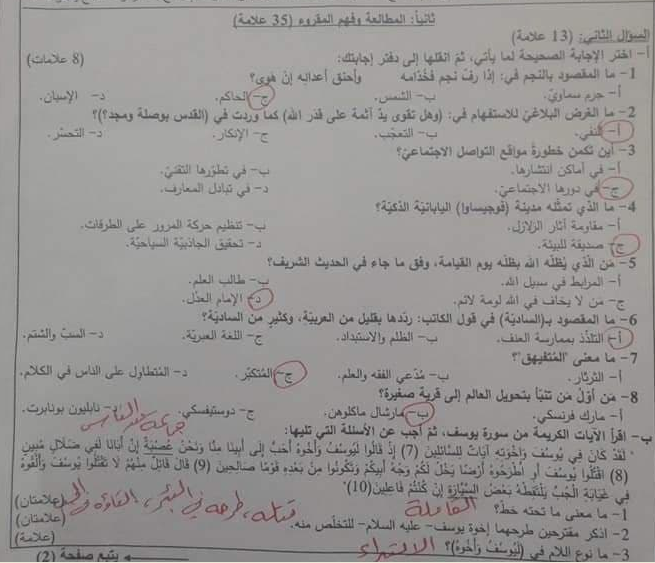 ثانياً: المطالعة وفهم المقروء (35 علامة)
السؤال الثاني: (13 علامة)
أ- اختر الإجابة الصحيحة لما يأتي، ثمّ انقلها إلى دفتر إجابتك: (8 علامات)
1- ما المقصود بالنجم في: إذا رفّ نجم فخُدّامه وأحنق أعدائه إنْ هَوى؟
أ- جرم سماويّ. ب- الشمس. ج- الحاكم. د- الإنسان.
2- ما الغرض البلاغيّ للاستفهام في: (وهل تقوى يدٌ آثمة على قدر الله) كما وردت في (القدس بوصلة ومجد؟)؟
أ- النفي. ب- التعجّب. ج- الإنكار. د- التحسّر.
3- أين تكمن خطورة مواقع التواصل الاجتماعيّ؟
أ- في أماكن انتشارها. ب- في تطوّرها التقنيّ.
ج- في دورها الاجتماعيّ. د- في تبادل المعارف.
4- ما الذي تمثّله مدينة (فوجيساوا) اليابانيّة الذكيّة؟
أ- مقاومة آثار الزلازل. ب- تنظيم حركة المرور على الطرقات.
ج- صديقة للبيئة. د- تحقيق الجاذبيّة السياحيّة.
5- مَن الّذي يُظلّه الله بظلّه يوم القيامة، وفق ما جاء في الحديث الشريف؟
أ- المرابط في سبيل الله. ب- طالب العلم.
ج- مَن لا يخاف في الله لومة لائم. د- الإمام العدْل.
6- ما المقصود بـ(الساديّة) في قول الكاتب: ردّدها بقليل من العربيّة، وكثيرٍ من الساديّة؟
أ- التلذّذ بممارسة العنف. ب- الظلم والاستبداد. ج- اللغة العبريّة. د- السبّ والشتم.
7- ما معنى "المُتفيهق"؟
أ- الثرثار. ب- مُدّعي الفقه والعلم. ج- المُتكبّر. د- المُتطاول على الناس في الكلام.
8- مَن أوّل مَن تنبّأ بتحويل العالم إلى قرية صغيرة؟
أ- مارك فرنسكي. ب- مارشال ماكلوهن. ج- دوستيفسكي. د- نابليون بونابرت.
ب- اقرأ الآيات الكريمة من سورة يوسف، ثمّ أجب عن الأسئلة التي تليها:
"لَقَدْ كَانَ فِي يُوسُفَ وَإِخْوَتِهِ آيَاتٌ لِلسَّائِلِينَ (7) إِذْ قَالُوا لَيُوسُفُ وَأَخُوهُ أَحَبُّ إِلَى أَبِينَا مِنَّا وَنَحْنُ عُصْبَةٌ إِنَّ أَبَانَا لَفِي ضَلَالٍ مُبِينٍ
(8) اقْتُلُوا يُوسُفَ أَوِ اطْرَحُوهُ أَرْضًا يَخْلُ لَكُمْ وَجْهُ أَبِيكُمْ وَتَكُونُوا مِنْ بَعْدِهِ قَوْمًا صَالِحِينَ (9) قَالَ قَائِلٌ مِنْهُمْ لَا تَقْتُلُوا يُوسُفَ وَأَلْقُوهُ
فِي غَيَابَةِ الْجُبِّ يَلْتَقِطْهُ بَعْضُ السَّيَّارَةِ إِنْ كُنْتُمْ فَاعِلِينَ(10)"
1- ما معنى ما تحته خطّ؟ القافلة (علامتان)
2- اذكر مقترحين طرحهما إخوة يوسف- عليه السلام- للتخلّص منه. قتله، طرحه في البئر (علامتان)
3- ما نوع اللام في (لَيُوسُفُ وَأَخُوهُ)؟ الابتداء (علامة)
يتبع صفحة (2)